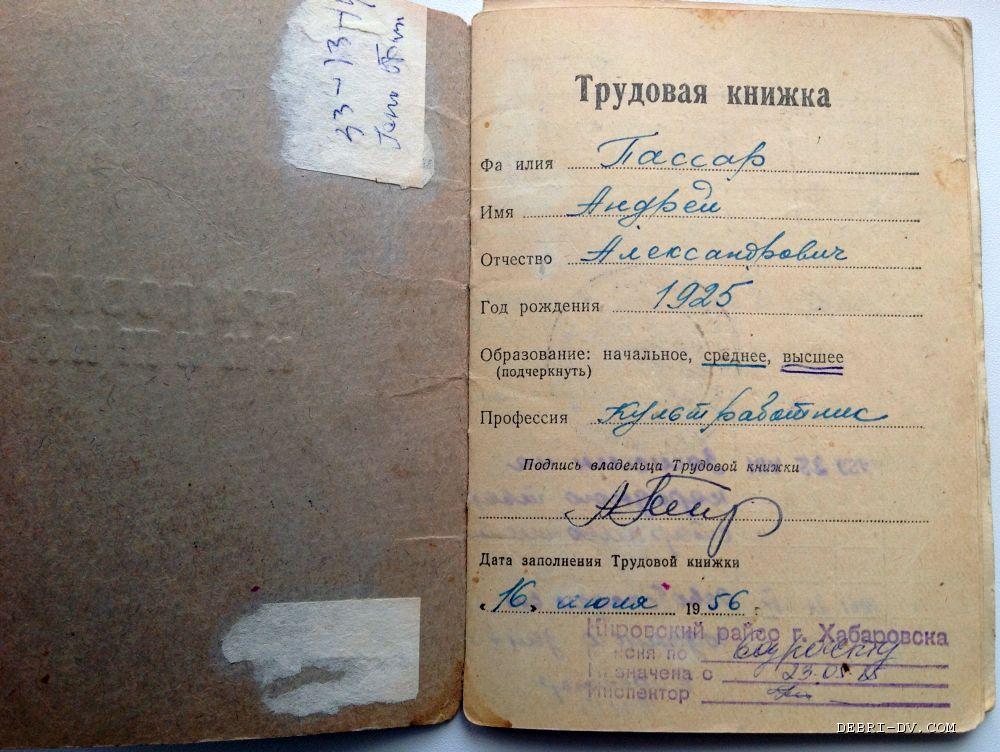 33-13-
Трудовая книжка
Фа илия Пассар
Имя Андрей
Отчество Александрович
Год рождения 1925
Образование: начальное, среднее, высшее
(подчеркнуть)
Профессия Культработник
Подпись владельца Трудовой книжки
Дата заполнения Трудовой книжки
"16" июля 1956 г.
Кировский райсо г. Хабаровска
нсия по возрасту
Назначена с 23.05.85
Инспектор
DEBRI-DV.COM